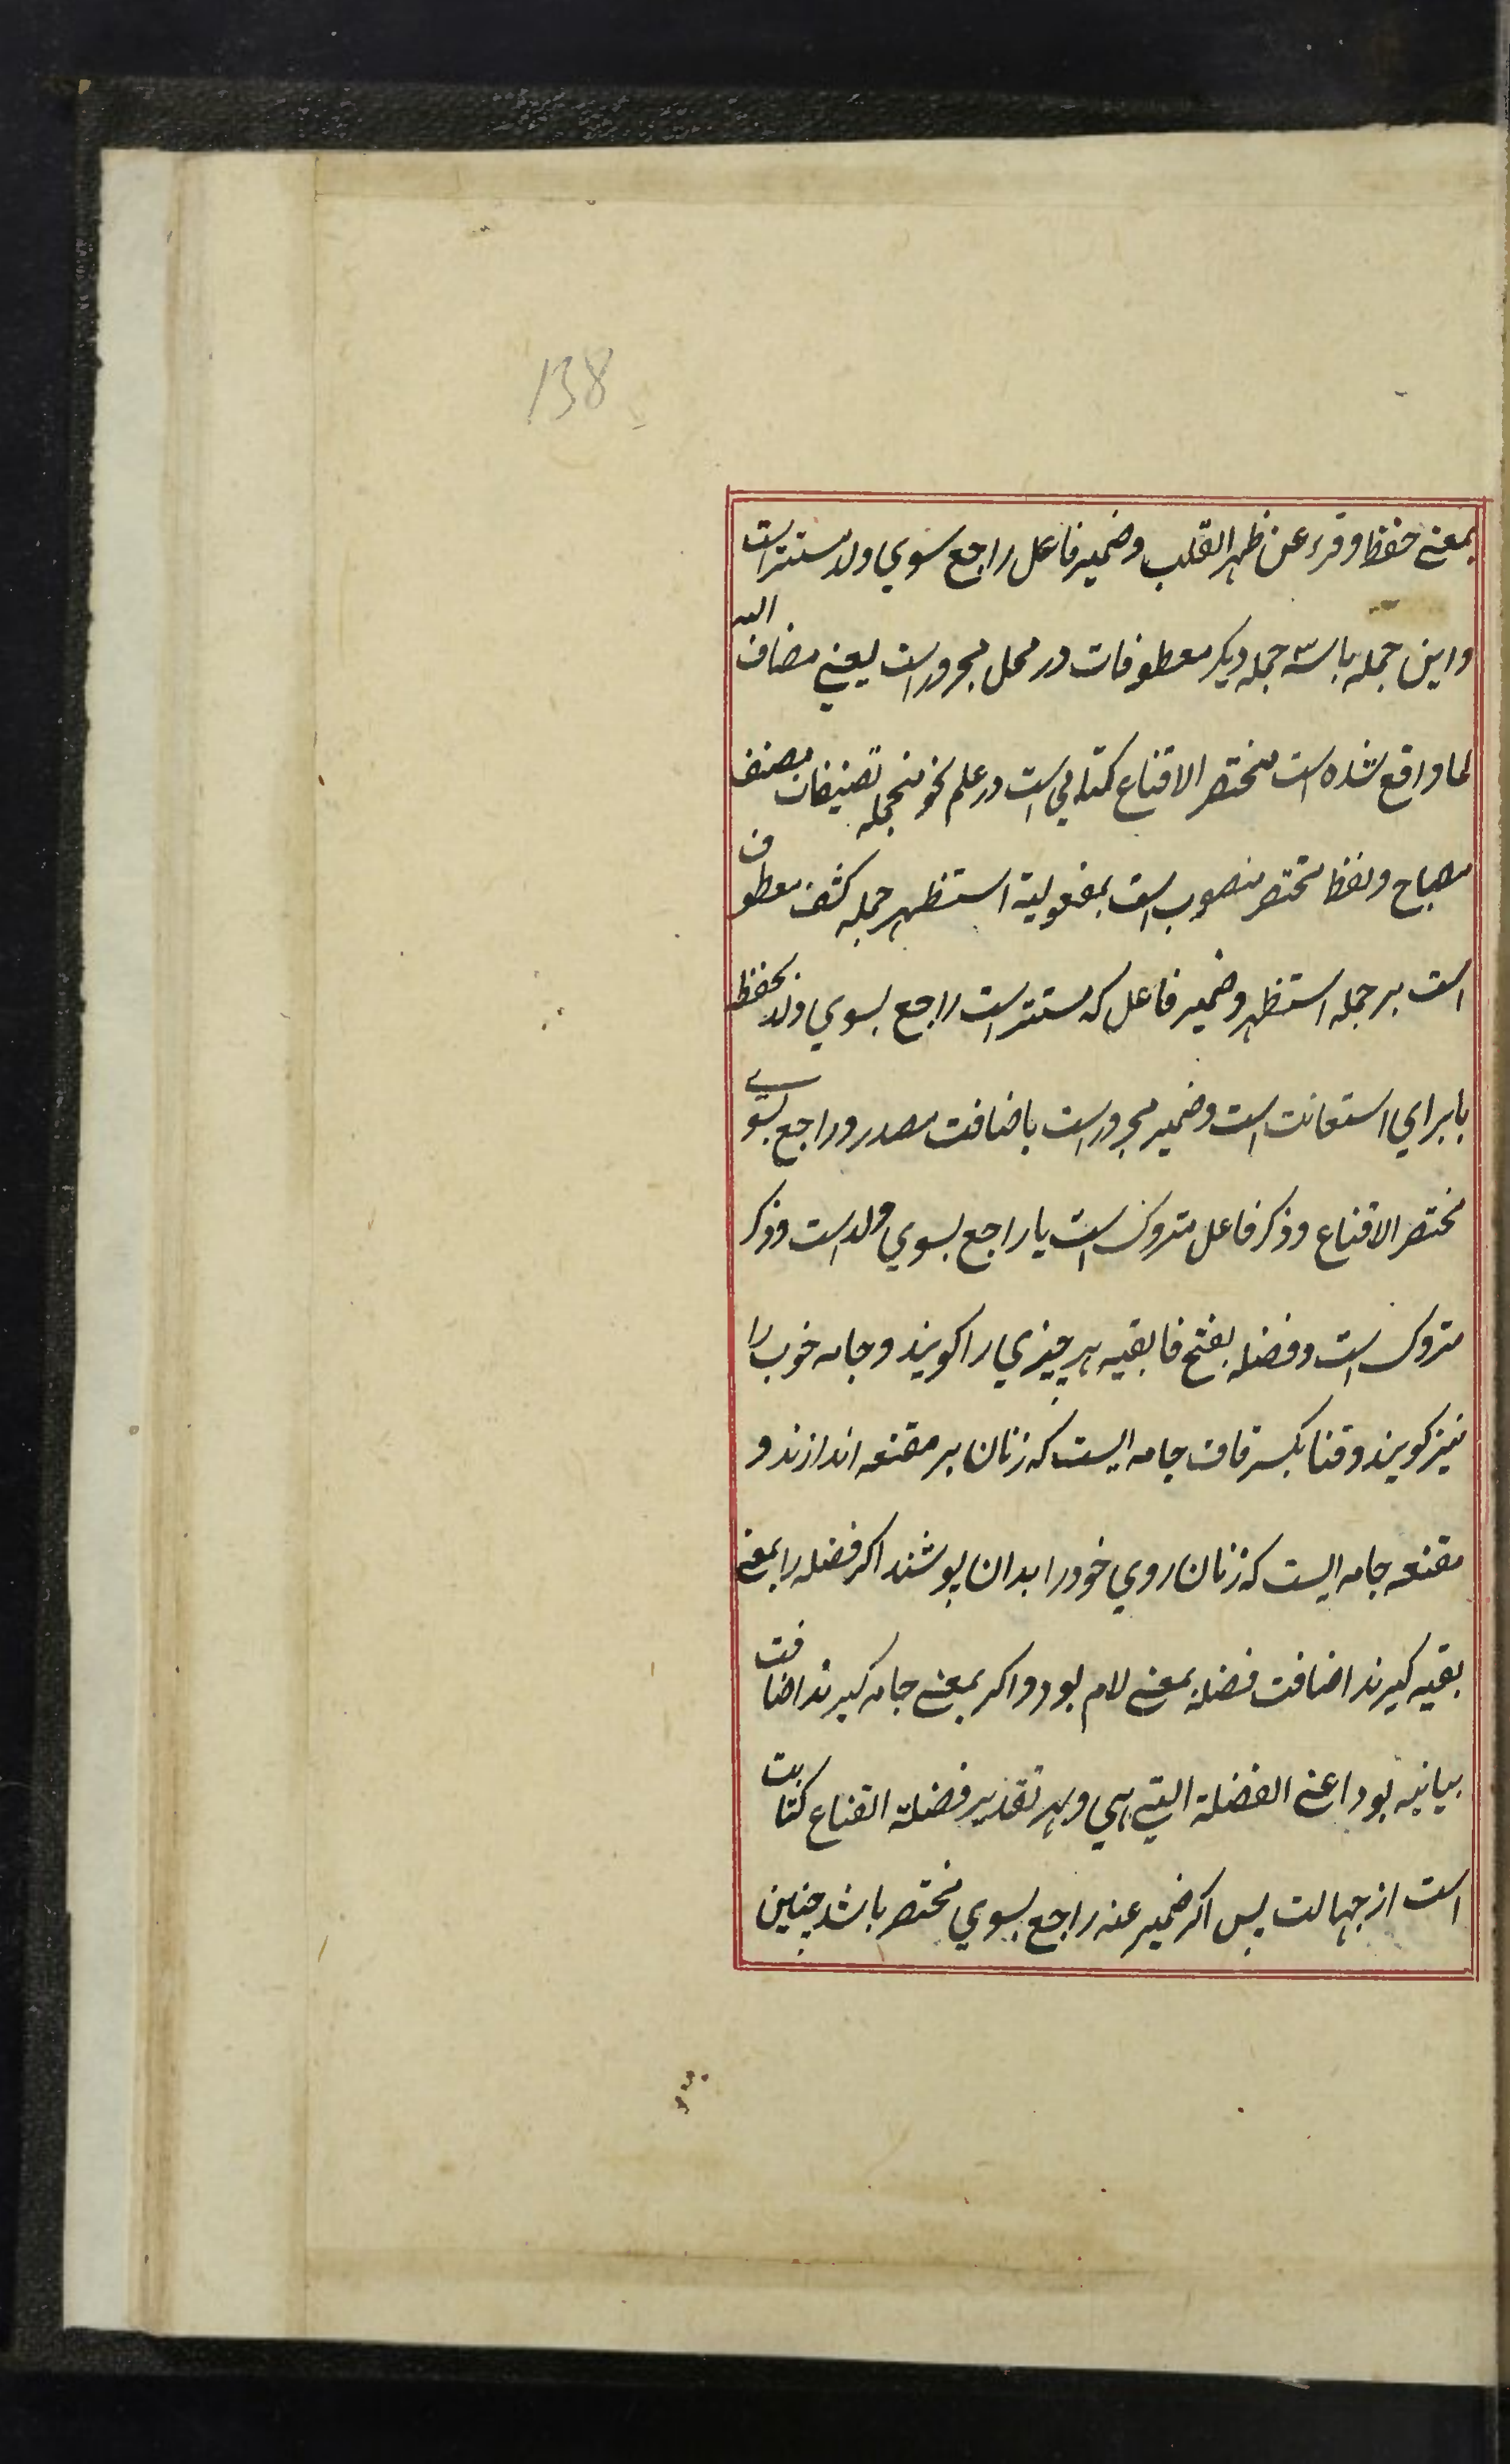 138
بمعنے حفظ و قرء عن ظهر القلب و ضمیر فاعل راجع سوي ولد مستتر است
و این جمله با سه جمله دیکر معطوفات در محل مجرور است یعنے مضاف الیه
لما واقع شده است مختصر الاقناع کتابي است در علم نحو منجمله تصنیفات مصنف
مصباح و لفظ مختصر منصوب است بمفعولیة استظهر جمله کشف معطوف
است بر جمله استظهر و ضمیر فاعل که مستتر است راجع بسوي ولد بحفظه
با براي استعانت است و ضمیر مجرور است باضافت مصدر و راجع بسوے
مختصر الاقناع و ذکر فاعل متروک است یا راجع بسوي ولد است و ذکر
متروک است و فضله بفتح فا بقیه هر چیزي را کویند و جامه خوب را
نیز کویند و قناع بکسر قاف جامه ایست که زنان بر مقنعه اندازند و
مقنعه جامه ایست که زنان روي خود را بدان پوشند اکر فضله را بمعنے
بقیه کیرند اضافت فضله بمعنے لام بود و اکر بمعنے جامه کیرند اضافت
بیانیه بود اعنے الفضلة التي هي و بهر تقدیر فضلة القناع کنایت
است از جهالت پس اکر ضمیر عنه راجع بسوي مختصر باشد چنین